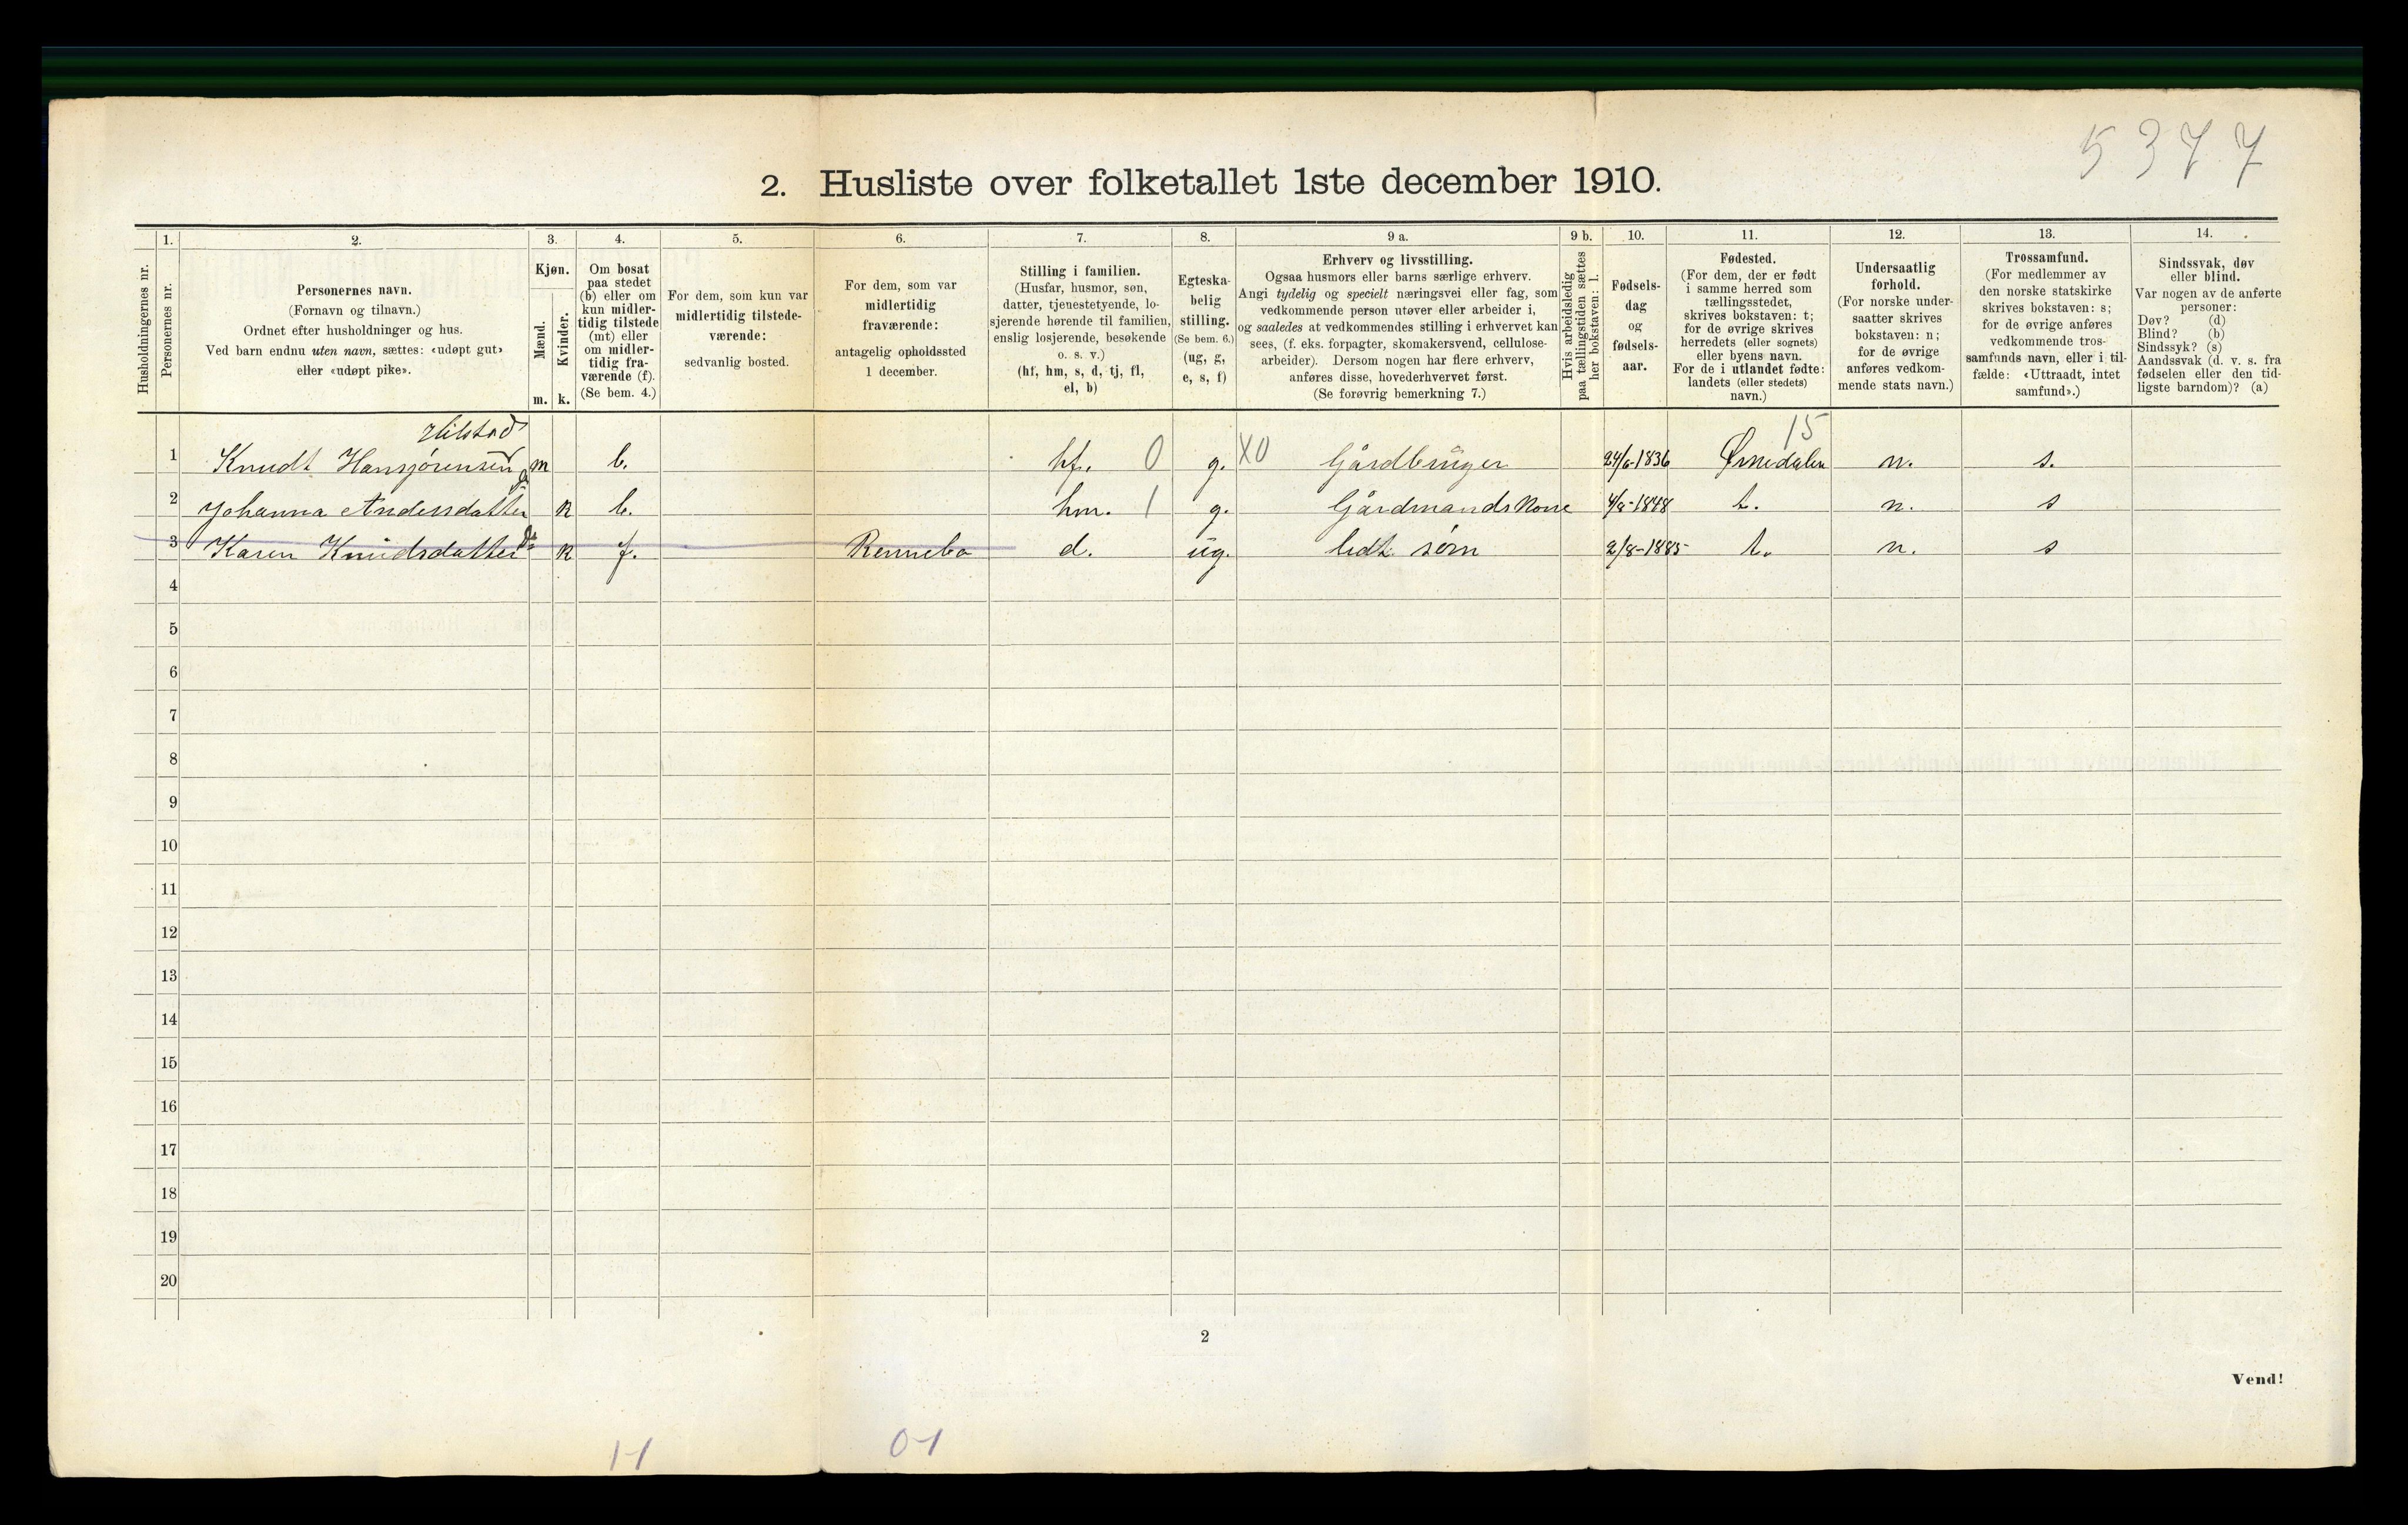 5377
2. Husliste over folketallet 1ste december 1910.
1. 2. 3. 4. 5. 6. 7. 8. 9 a. 9 b. 10. 11. 12. 13. 14.
Husholdningernes nr.
Personernes nr.
Personernes navn.
(Fornavn og tilnavn.)
Ordnet efter husholdninger og hus.
Ved barn endnu uten navn, sættes: «udøpt gut»
eller «udøpt pike».
Kjøn.
Mænd.
Kvinder.
m. k.
Om bosat
paa stedet
(b) eller om
kun midler-
tidig tilstede
(mt) eller
om midler-
tidig fra-
værende (f).
(Se bem. 4.)
For dem, som kun var
midlertidig tilstede-
værende:
sedvanlig bosted.
For dem, som var
midlertidig
fraværende:
antagelig opholdssted
1 december.
Stilling i familien.
(Husfar, husmor, søn,
datter, tjenestetyende, lo-
sjerende hørende til familien,
enslig losjerende, besøkende
o. s. v.)
(hf, hm, s, d, tj, fl,
el, b)
Egteska-
belig
stilling.
(Se bem. 6.)
(ug, g,
e, s, f)
Erhverv og livsstilling.
Ogsaa husmors eller barns særlige erhverv.
Angi tydelig og specielt næringsvei eller fag, som
vedkommende person utøver eller arbeider i,
og saaledes at vedkommendes stilling i erhvervet kan
sees, (f. eks. forpagter, skomakersvend, cellulose-
arbeider). Dersom nogen har flere erhverv,
anføres disse, hovederhvervet først.
(Se forøvrig bemerkning 7.)
Hvis arbeidsledig
paa tællingstiden sættes
her bokstaven: l.
Fødsels-
dag
og
fødsels-
aar.
Fødested.
(For dem, der er født
i samme herred som
tællingsstedet,
skrives bokstaven: t;
for de øvrige skrives
herredets (eller sognets)
eller byens navn.
For de i utlandet fødte:
landets (eller stedets)
navn.)
Undersaatlig
forhold.
(For norske under-
saatter skrives
bokstaven: n;
for de øvrige
anføres vedkom-
mende stats navn.)
Trossamfund.
(For medlemmer av
den norske statskirke
skrives bokstaven: s;
for de øvrige anføres
vedkommende tros-
samfunds navn, eller i til-
fælde: «Uttraadt, intet
samfund».)
Sindssvak, døv
eller blind.
Var nogen av de anførte
personer:
Døv? (d)
Blind? (b)
Sindssyk? (s)
Aandssvak (d. v. s. fra
fødselen eller den tid-
ligste barndom)? (a)
15
1 Knudt Hansjörensen m b. hf. 0 g. X0 Gårdbruger 24/6-1836 Ørnedalen n. s.
2 Johanna Andersdatter do k b. hm. 1 g. Gårdmands Kone 4/8-1848 t. n. s
3 Karen Knudsdatter do k f. Rennebo d. ug. lidt söm 2/8-1885 t. n. s
4
5
6
7
8
9
10
11
12
13
14
15
16
17
18
19
20
2
Vend!
1-1 0-1